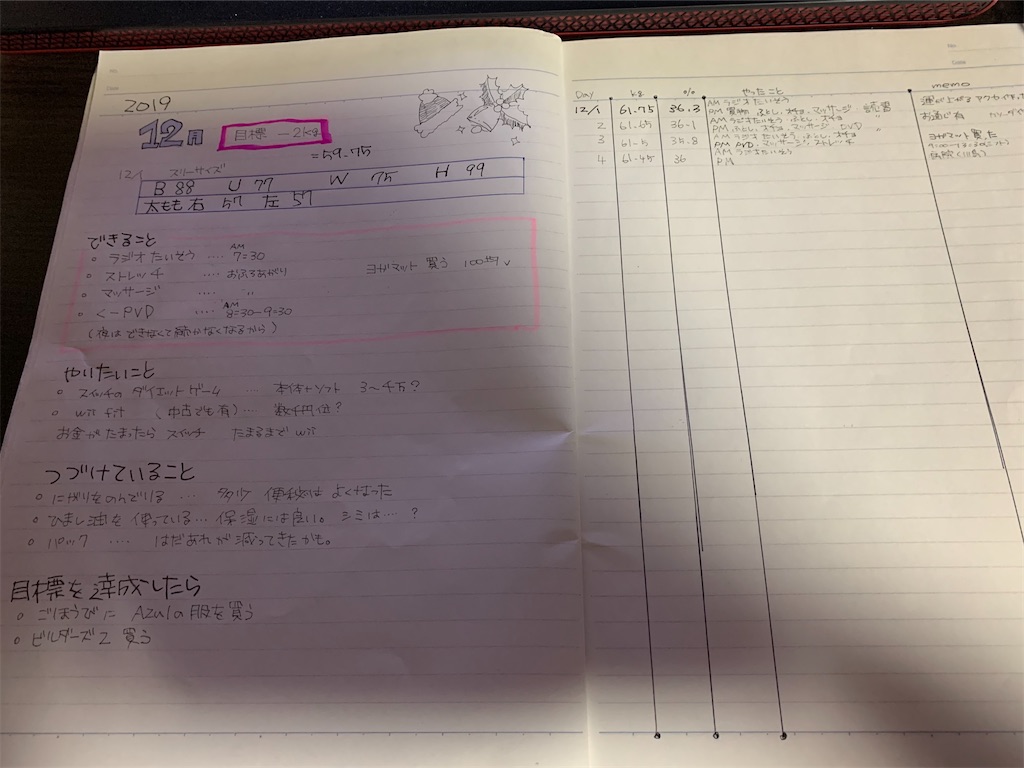 No.
Date
2019
12月
目標 -2kg
=59.75
12/1 スリーサイズ
B 88 U 77 W 75 H 99
太もも 右 57 左 57
できること
AM
○ ラジオたいそう .... 7:30
○ ストレッチ .... おふろあがり
ヨガマット 買う 100均
○ マッサージ .... 〃
AM
○ <-PVD .... 8:30-9:30
やりたいこと
○ スイッチの ダイエットゲーム ... 本体+ソフト 3〜千万?
○ wii fit (中古でも有) ... 数千円位?
お金がたまったら スイッチ たまるまで wii
つづけていること
○ にがりをのんでいる ... 多少 便秘は よくなった
○ ひまし油を 使っている... 保湿には良い。シミは... ?
○ パック .... はだあれが 減ってきたかも。
目標を達成したら
○ ごほうびに Azulの服を買う
○ ビルダーズ2 買う
No.
Date
Day kg % やったこと memo
12/1 61.75 36.3 AM ラジオたいそう
PM 買物 マッサージ
お通じ有
2 61.65 36.1 AM ラジオたいそう
PM マッサージ
3 61.5 35.8 AM ラジオたいそう
ストレッチ
ヨガマット買った
4 61.45 36 AM ラジオたいそう
PM